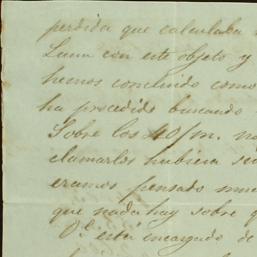 perdida que calculaba
Luna con este objeto y
hemos concluido como
ha procedido buscando
Sobre los 40/m. no
clamarlos hubiera
eramos pensado
que nada hay sobre
V. está encargado de